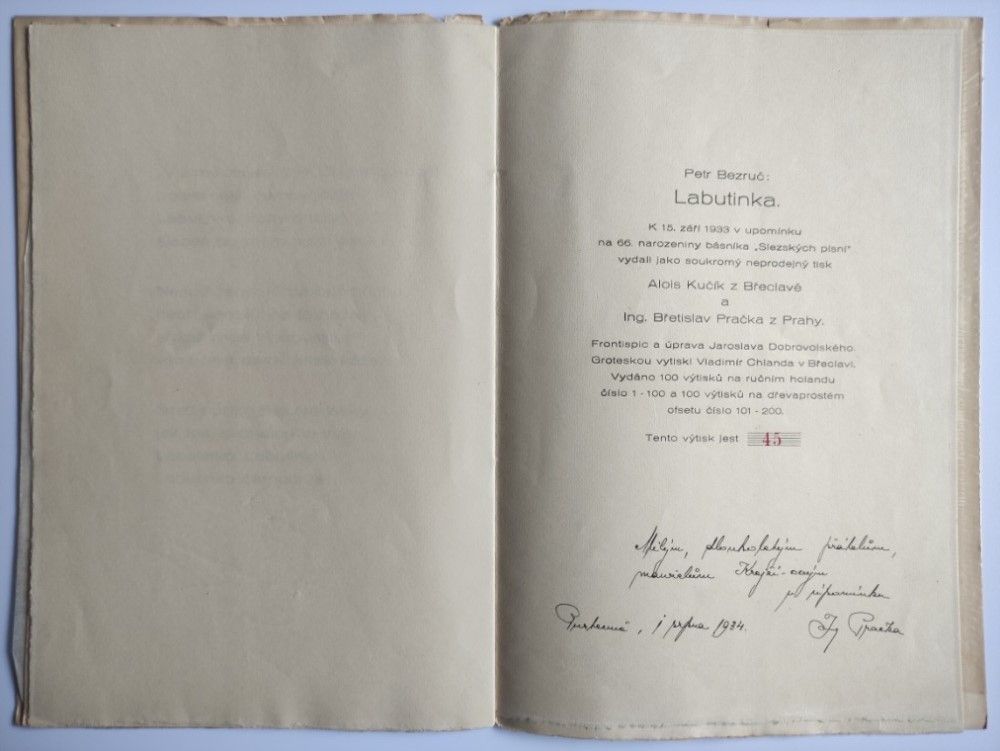 Petr Bezruč:
Labutinka.
K 15. září 1933 v upomínku
na 66. narozeniny básníka „Slezských písní“
vydali jako soukromý neprodejný tisk
Alois Kučík z Břeclavě
a
Ing. Břetislav Pračka z Prahy.
Frontispic a úprava Jaroslava Dobrovolského.
Groteskou vytiskl Vladimír Chlanda v Břeclavi.
Vydáno 100 výtisků na ručním holandu
číslo 1 - 100 a 100 výtisků na dřevaprostém
ofsetu číslo 101 - 200.
Tento výtisk jest 45
Milým, dlouholetým přátelům,
manželům Krejčí-ovým
v upomínku
1 srpna 1934. Ing Pračka